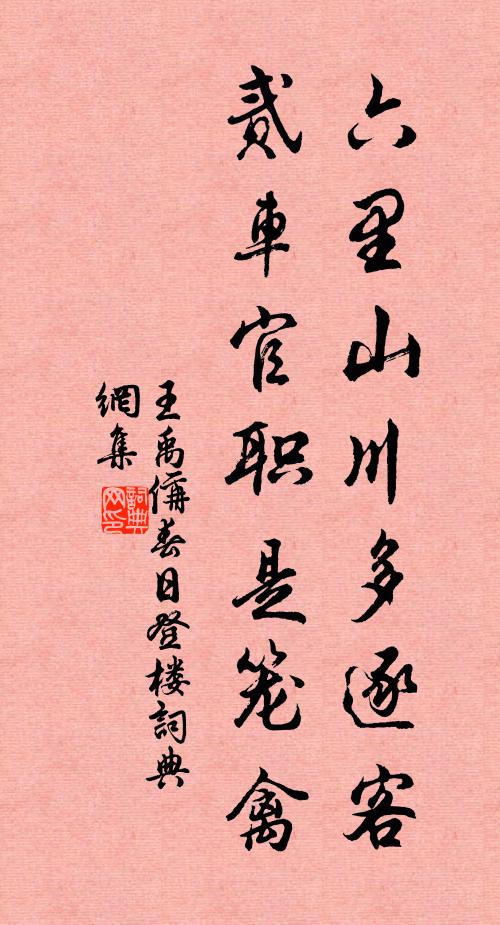 六里山川多逐客
貳車官职是笼禽
王禹偁春日登楼詞典
網集
詞典
网印